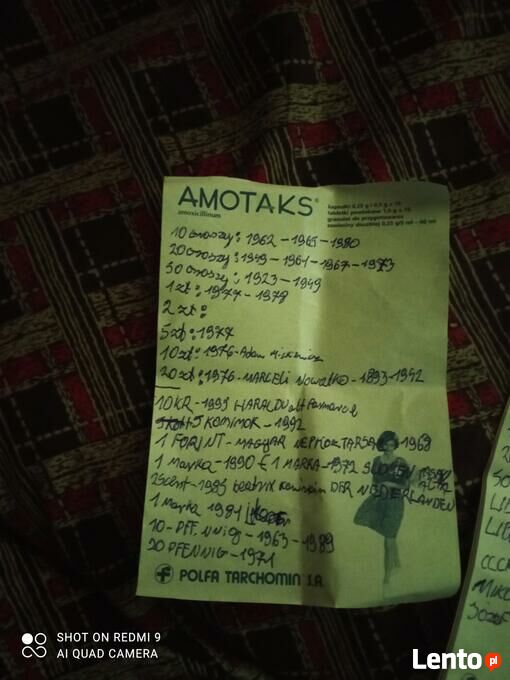 AMOTAKS®
amoxicillinum
kapsułki 0,25 g i 0,5 g x 16
tabletki powlekane 1,0 g x 16
granulat do przygotowania
zawiesiny doustnej 0,25 g/5 ml - 60 ml
10 Groszy: 1962 - 1965 - 1980
20 Groszy: 1949 - 1961 - 1967 - 1973
50 Groszy: 1923 - 1949
1 zł: 1977 - 1978
2 zł:
5 zł: 1977
10 zł: 1976 - Adam Mickiewicz
20 zł: 1976 - MARCELi Nowotko - 1893-1942
10 KR - 1993 HARALDV
5 KOMIMOR - 1992
1 FORINT - MAGYAR NEPKOZTARSA 1968
1 Marka - 1990 € 1 MARKA - 1972
25cent - 1985 beatrix DER NEDERLANDEN
1 Marka 1981
10 - PFENNiG - 1963 - 1989
20 PFENNIG - 1971
POLFA TARCHOMIN S.A.
CCCP
SHOT ON REDMI 9
AI QUAD CAMERA
Lento.pl